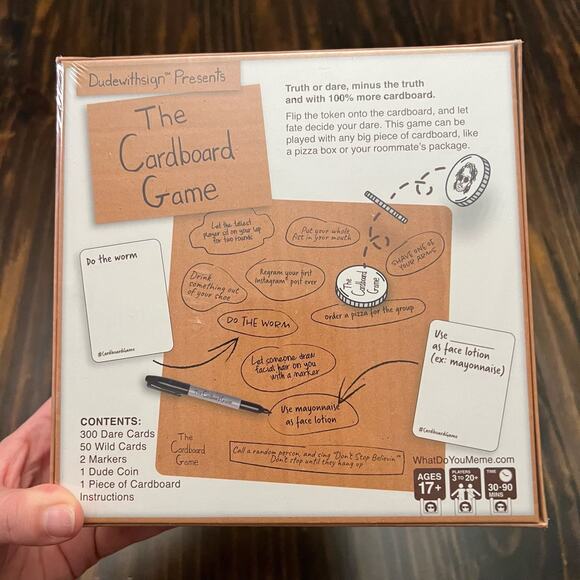 Dudewithsign™ Presents
The
Cardboard
Game
Truth or dare, minus the truth
and with 100% more cardboard.
Flip the token onto the cardboard, and let
fate decide your dare. This game can be
played with any big piece of cardboard, like
a pizza box or your roommate's package.
Let the tallest
player sit on your lap
for two rounds
Put your whole
fist in your mouth
SHAVE ONE OF
YOUR ARMS
Drink
something out
of your shoe
Regram your first
Instagram post ever
The
Cardboard
Game
order a pizza for the group
DO THE WORM
Let someone draw
facial hair on you
with a marker
Use mayonnaise
as face lotion
The
Cardboard
Game
Call a random person, and sing "Don't Stop Believin'"
Don't stop until they hang up
Do the worm
#CardboardGame
Use
as face lotion
(ex: mayonnaise)
#CardboardGame
CONTENTS:
300 Dare Cards
50 Wild Cards
2 Markers
1 Dude Coin
1 Piece of Cardboard
Instructions
WhatDoYouMeme.com
AGES
17+
PLAYERS
3 TO 20+
TIME
30-90
MINS